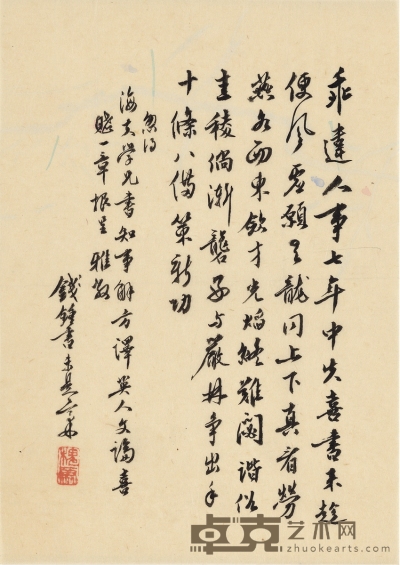 乖違人事七年中失喜書來趁
便風虛願雲龍同上下真看勞
燕各西東斂才光焰終難閟諧俗
圭稜倘漸礱子與嚴林爭出手
十條八備策新功
忽得
海夫學兄書知事解方譯英人文論喜
賦一章報呈雅教
錢鍾書未是草
卓克艺术网
www.zhuokearts.com